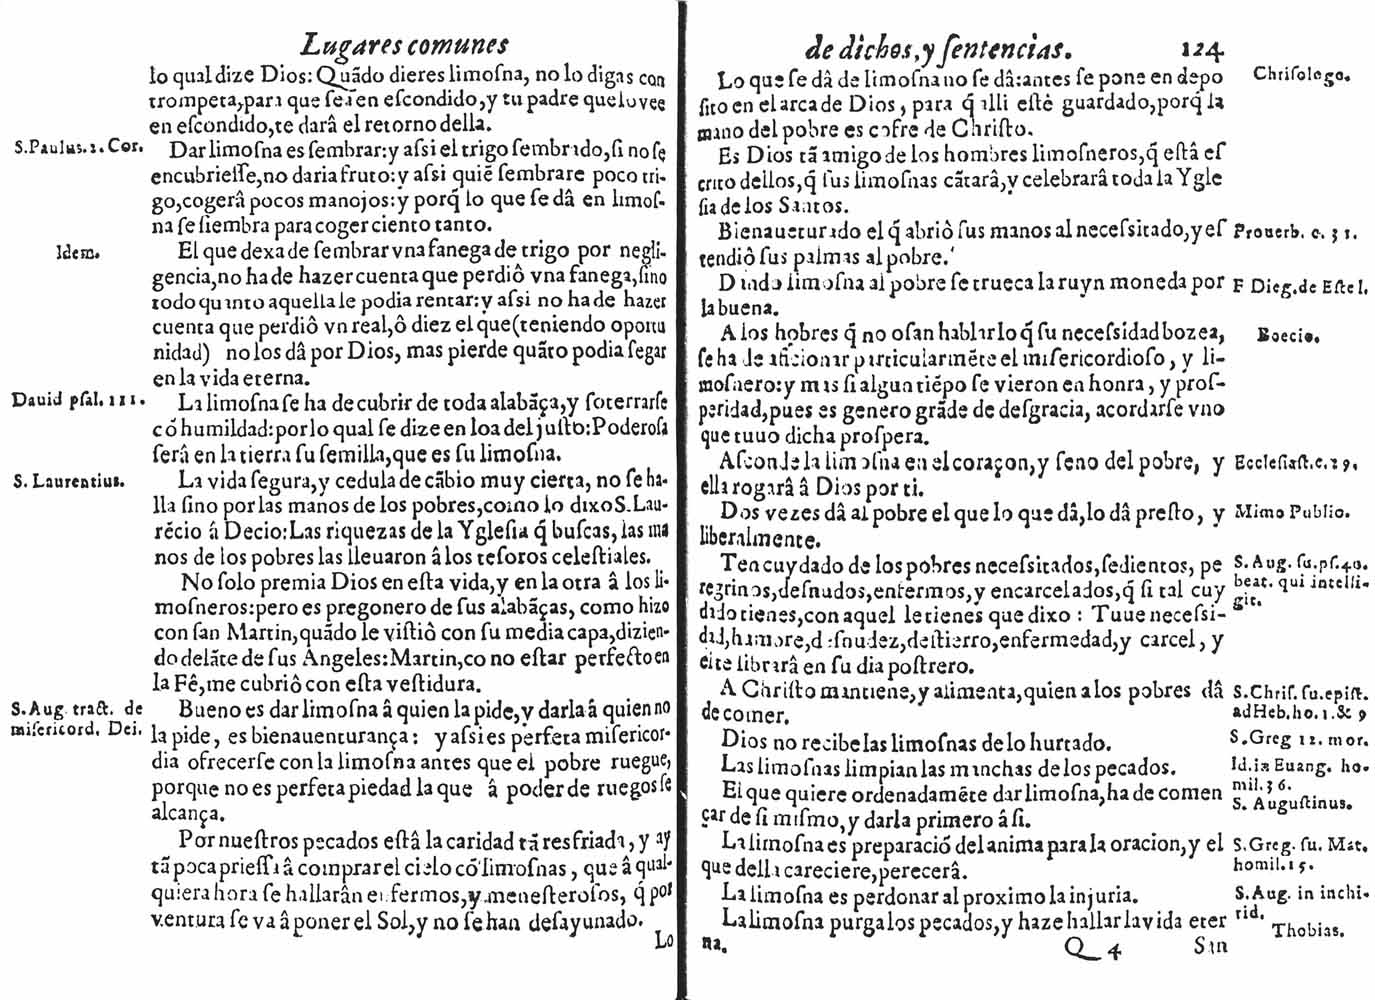 Lugares comunes
lo qual dize Dios: Quãdo dieres limosna, no lo digas con
trompeta, para que sea en escondido, y tu padre que lo vee
en escondido, te darâ el retorno della.
S. Paulus. 2. Cor.
Dar limosna es sembrar: y assi el trigo sembrado, si no se
encubriesse, no daria fruto: y assi quiẽ sembrare poco tri-
go, cogerâ pocos manojos: y porq̃ lo que se dâ en limos-
na se siembra para coger ciento tanto.
Idem.
El que dexa de sembrar vna fanega de trigo por negli-
gencia, no ha de hazer cuenta que perdiô vna fanega, sino
todo quanto aquella le podia rentar: y assi no ha de hazer
cuenta que perdiô vn real, ô diez el que (teniendo oportu
nidad) no los dâ por Dios, mas pierde quãto podia segar
en la vida eterna.
Dauid psal. 111.
La limosna se ha de cubrir de toda alabãça, y soterrarse
cõ humildad: por lo qual se dize en loa del justo: Poderosa
serâ en la tierra su semilla, que es su limosna.
S. Laurentius.
La vida segura, y cedula de cãbio muy cierta, no se ha-
lla sino por las manos de los pobres, como lo dixo S. Lau-
rẽcio â Decio: Las riquezas de la Yglesia q̃ buscas, las ma
nos de los pobres las lleuaron â los tesoros celestiales.
No solo premia Dios en esta vida, y en la otra â los li-
mosneros: pero es pregonero de sus alabãças, como hizo
con san Martin, quãdo le vistiô con su media capa, dizien-
do delãte de sus Angeles: Martin, co no estar perfecto en
la Fê, me cubriô con esta vestidura.
S. Aug. tract. de
misericord. Dei.
Bueno es dar limosna â quien la pide, y darla â quien no
la pide, es bienauenturança: y assi es perfeta misericor-
dia ofrecerse con la limosna antes que el pobre ruegue,
porque no es perfeta piedad la que â poder de ruegos se
alcança.
Por nuestros pecados estâ la caridad tã resfriada, y ay
tã poca priessa â comprar el cielo cõ limosnas, que â qual-
quiera hora se hallarân enfermos, y menesterosos, q̃ por
ventura se va â poner el Sol, y no se han desayunado.
Lo
de dichos, y sentencias. 124
Lo que se dâ de limosna no se dâ: antes se pone en depo
sito en el arca de Dios, para q̃ alli estê guardado, porq̃ la
mano del pobre es cofre de Christo.
Chrisologo.
Es Dios tã amigo de los hombres limosneros, q̃ estâ es
crito dellos, q̃ sus limosnas cãtarâ, y celebrarâ toda la Ygle
sia de los Santos.
Bienaueturado el q̃ abriô sus manos al necessitado, y es
tendiô sus palmas al pobre.
Prouerb. c. 31.
Dando limosna al pobre se trueca la ruyn moneda por
la buena.
F Dieg. de Estel.
A los hõbres q̃ no osan hablar lo q̃ su necessidad bozea,
se ha de aficionar particularmẽte el misericordioso, y li-
mosnero: y mas si algun tiẽpo se vieron en honra, y pros-
peridad, pues es genero grãde de desgracia, acordarse vno
que tuuo dicha prospera.
Boecio.
Asconde la limosna en el coraçon, y seno del pobre, y
ella rogarâ â Dios por ti.
Ecclesiast. c. 29.
Dos vezes dâ al pobre el que lo que dâ, lo dâ presto, y
liberalmente.
Mimo Publio.
Ten cuydado de los pobres necessitados, sedientos, pe
regrinos, desnudos, enfermos, y encarcelados, q̃ si tal cuy
dado tienes, con aquel le tienes que dixo: Tuue necessi-
dad, hambre, desnudez, destierro, enfermedad, y carcel, y
este librarâ en su dia postrero.
S. Aug. su. ps. 40.
beat. qui intelli-
git.
A Christo mantiene, y alimenta, quien a los pobres dâ
de comer.
S. Chris. su. epist.
ad Heb. ho. 1. & 9
Dios no recibe las limosnas de lo hurtado.
S. Greg 12. mor.
Las limosnas limpian las manchas de los pecados.
Id. in Euang. ho-
mil. 36.
El que quiere ordenadamẽte dar limosna, ha de comen
çar de si mismo, y darla primero â si.
S. Augustinus.
La limosna es preparaciô del anima para la oracion, y el
que della careciere, perecerâ.
S. Greg. su. Mat.
homil. 15.
La limosna es perdonar al proximo la injuria.
S. Aug. in inchi-
rid.
La limosna purga los pecados, y haze hallar la vida eter
na.
Thobias.
Q 4 San